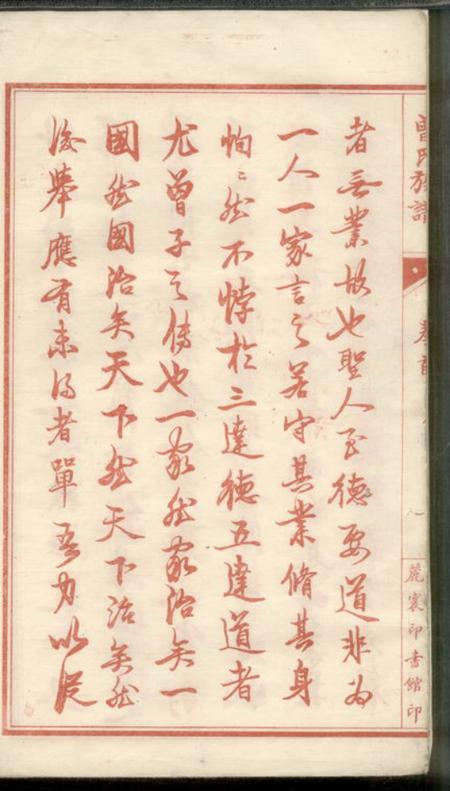 曾氏族譜
卷首
一
麗寰印書館印
者無業故也聖人至德要道非為
一人一家言之若守其業脩其身
恂〻然不悖於三達德五達道者
尤曾子之儔也一家然家治矣一
國然國治矣天下然天下治矣然
後舉應有未得者單吾力以從